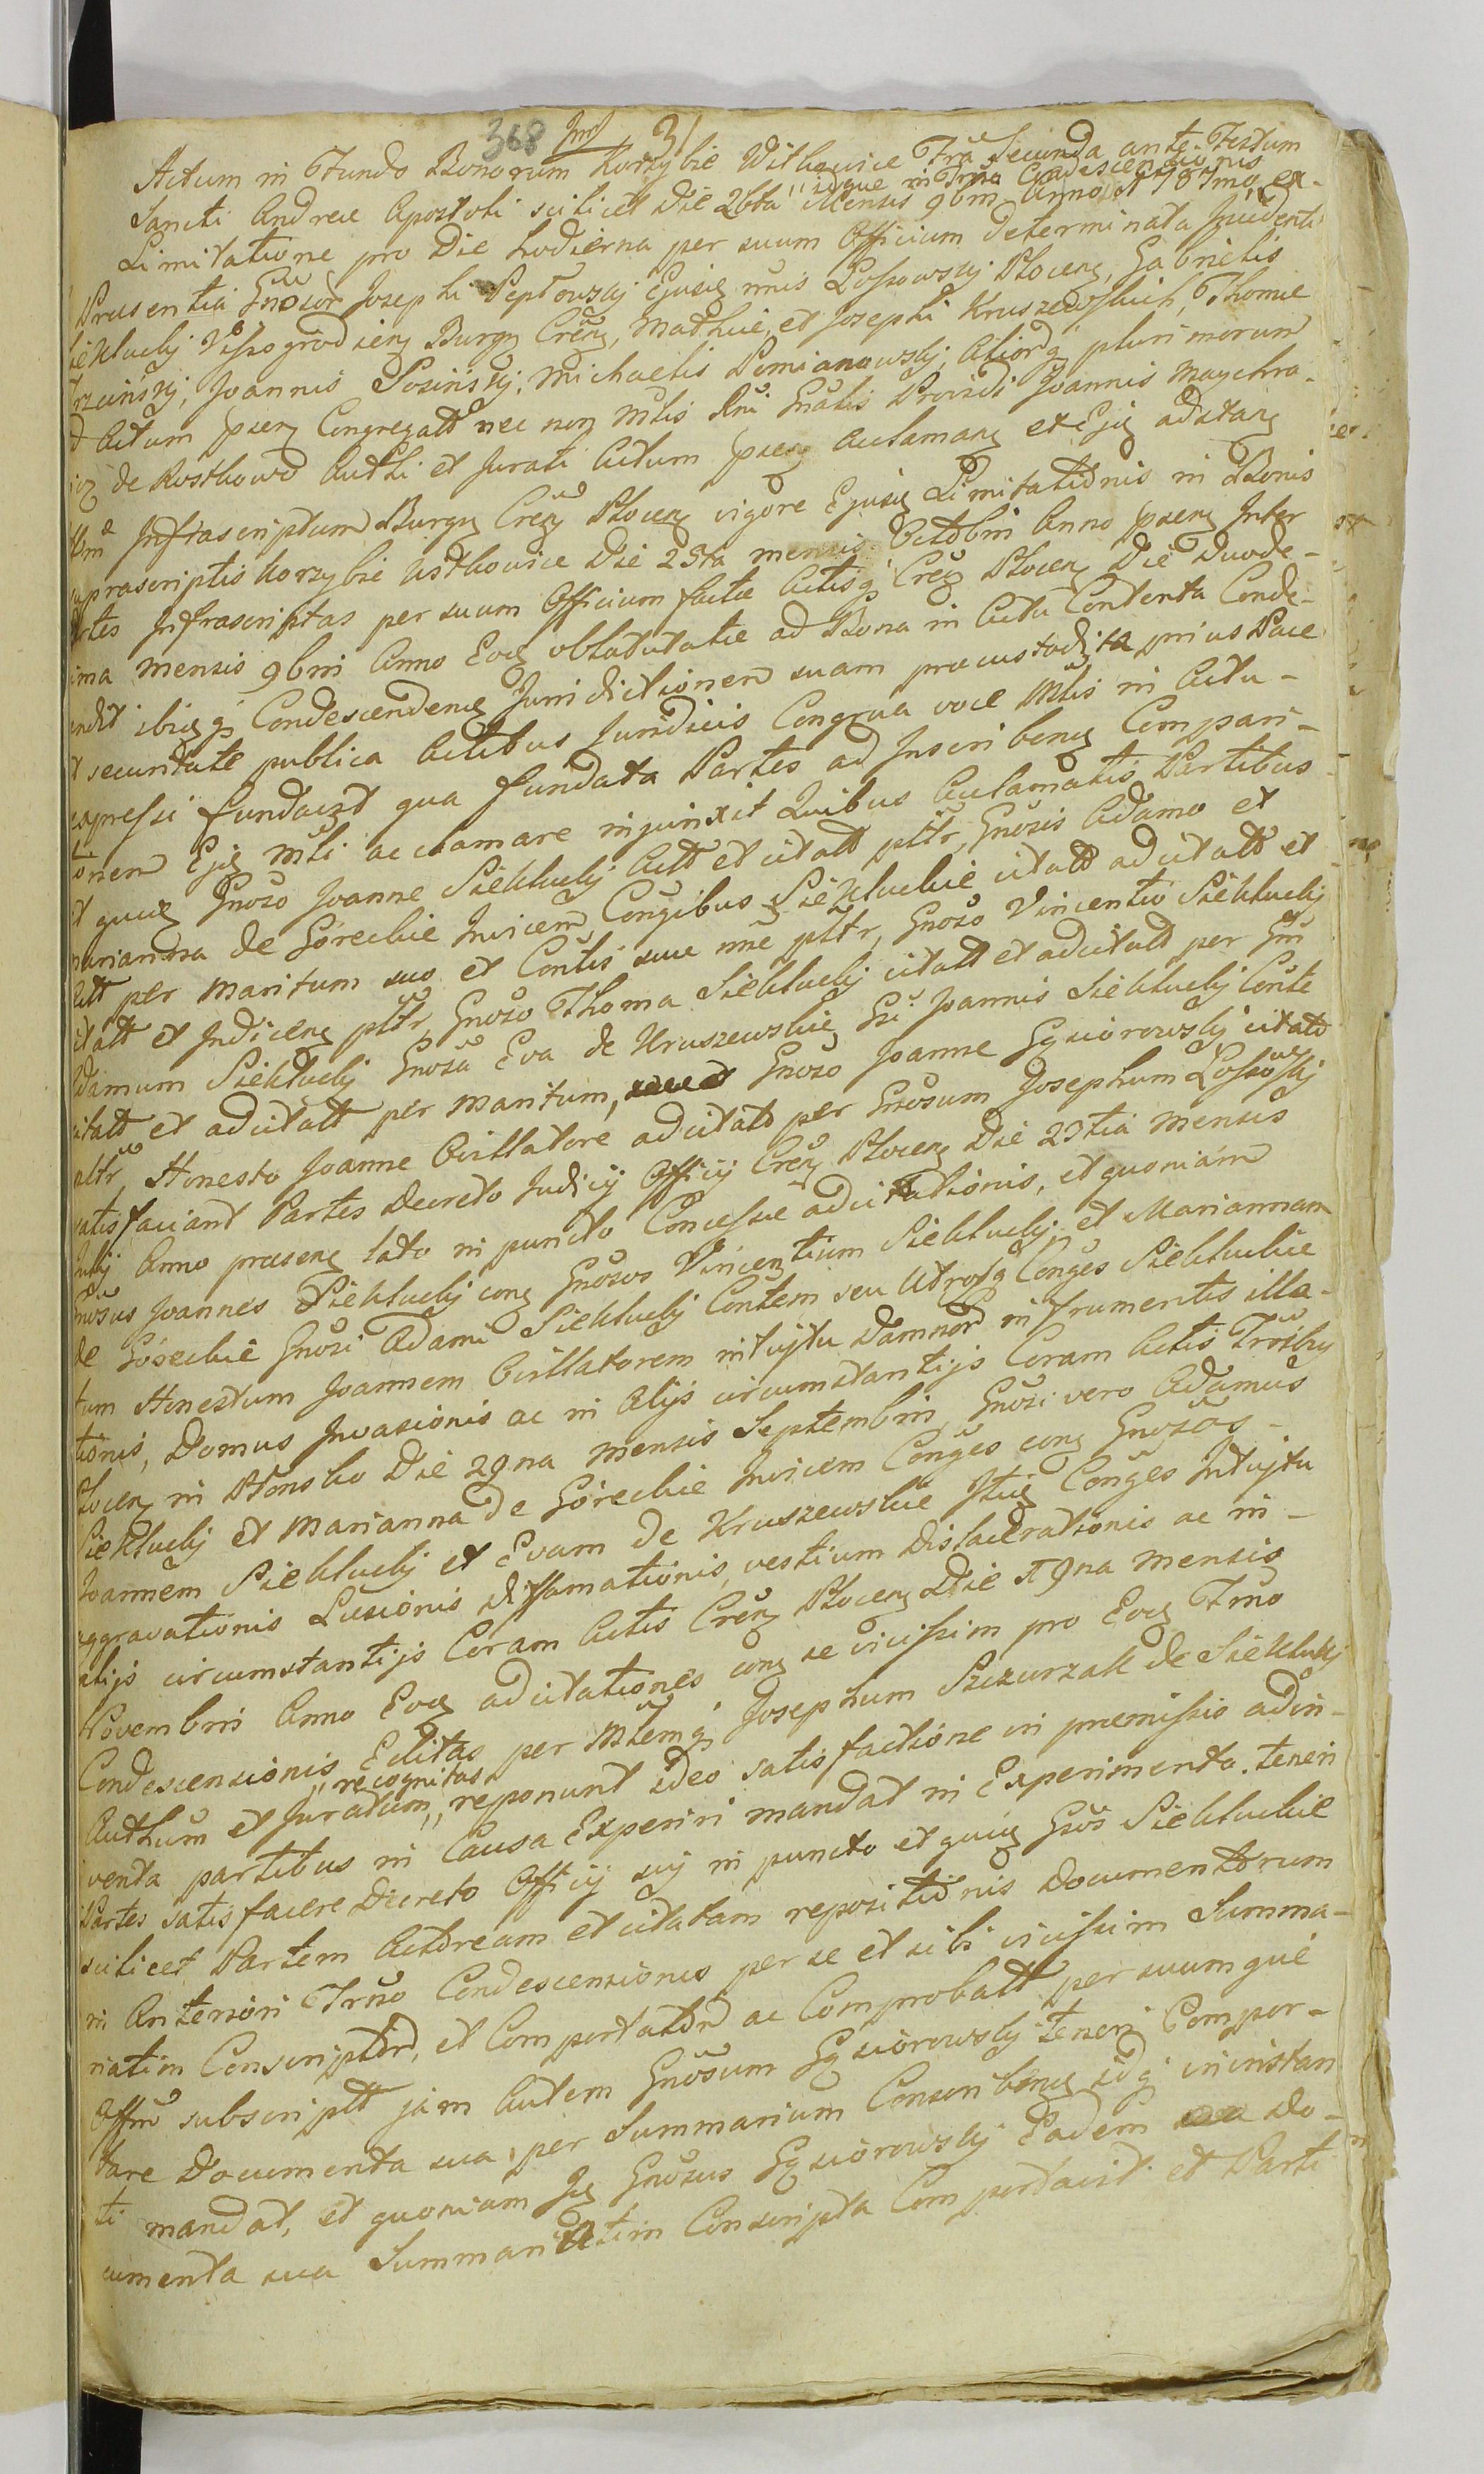 368 31
Actum in Fundo Bonorum Korzybie Witkowice Fria Secunda ante Festum
idque in Trno Condescensionis
Sancti Andreae Apostoli scilicet Die 26ta Mensis 9bris Anno 1787mo ex
Limitatione pro Die hodierna per suum Officium determinata Incidenti
Praesentia Gnosor Josephi Peptowskj Ejusq nnis Lossowskj Plocens, Gabrielis
Siekluckj Vissogrodiens Burgs Crens, Mathiae, et Josephi Kruszewskich, Thomae
Trzcinskj, Joannis Sosinskj, Michaelis Pomianowskj, Aliorq plurimorum
d Actum psens Congregatt nec non Mtis Rni Gnalis Providi Joannis Maychra-
de Rostkowo Authi et Jurati Actum psens Aclamans et Ejq adstans
Infrascriptum Burgs Crens Plocens vigore Ejusq Limitationis in Bonis
supra scriptis Korzybie Witkowice Die 25ta mensis Octobris Anno psens Inter
Partes Infrascriptas per suum Officium factae Actisq Crens Plocens Die Duode-
cima mensis 9bris Anno Eoq oblatutatae ad Bona in Actu Contenta Conde-
scendit ibiqq Condescendens Jurisdictionem suam praecustodita prius Pace
et securitate publica Actibus Juridicis Congrua voce Mtis in Actu
expressi fundavit qua fundata Partes ad Inscribens Compari-
tionem Ejq Mtli acclamare injunxit Quibus Aclamatis Partibus
et quiq Gnoso Joanne Siekluckj Actt et citatt pltr, Gnosis Adamo et
Marianna de Goreckie Invicem Congibus Siekluckie citatt adcitatt et
Actt per maritum suo et Contis suae nne pltr, Gnoso Vincentio Siekluckj
citatt et Indicens pltr, Gnoso Thoma Siekluckj citatt et adcitatt per Gnm
Adamum Siekluckj Gnosa Eva de Kruszewskie Gsi Joannis Siekluckj Conte
citatt et adcitatt per maritum, Gnoso Joanne Gąsiorowskj citato
pltr, Honesto Joanne Cistlatore adcitato per Gnosum Josephum Lossowskj
satisfaciant Partes Decreto Judicij Officij Crens Plocens Die 23tia mensis
Julij Anno praesens lato in puncto Concessae adcitationis, et quoniam
Gnosus Joannes Siekluckj cons Gnosos Vincentium Siekluckj, et Mariannam
de Goreckie Gnosi Adami Siekluckj Contem seu Utrosq Conges Siekluckie
tum Honestum Joannem Cistlatorem intujtu Damnor in frumentis illa-
tionis, Domus Invasionis ac in Alijs circumstantijs Coram Actis Trrsbus
Plocens in Płonsko Die 29na mensis Septembris, Gnosi vero Adamus
Siekluckj et Marianna de Goreckie Invicem Conges cons Gnosos
Joannem Siekluckj et Evam de Kruszewskie Itiq Conges Intujtu
aggravationis Laesionis diffamationis, vestium Dislacerationis ac in
alijs circumstantijs Coram Actis Crens Plocens Die 19na mensis
Novembris Anno Eoq adcitationes cons se vicissim pro Eoq Trno
Condescensionis Editas per Mtemq Josephum Szczurzak de Sieklukj
recognitas
Authum et Juratum reponunt ideo satisfactione in praemissis adin-
venta partibus in Causa Experiri mandat in Experimento teneri
Partes satisfacere Decreto Officij suj in puncto et quiq Gsos Siekluckie
scilicet Partem Actoream et citatam repositionis Documentorum
in Anteriori Trno Condescensionis per se et sibi vicissim Summa-
riatim Conscriptor, et Comportator ac Comprobatt per suumque
Offm subscriptt jam Autem Gnosum Gąsiorowskj teneri Compor-
tare Documenta sua, per Summarium Conscribens idq in instan
ti mandat, et quoniam Iq Gnosus Gąsiorowskj Eadem Do-
cumenta sua Summariatim Conscripta Comportavit et Parti